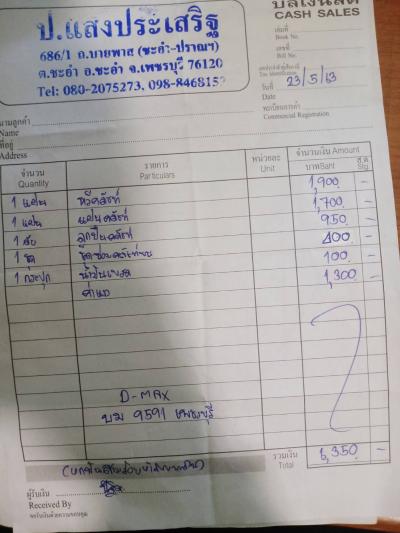 ป.แสงประเสริฐ
686/1 ถ.บายพาส (ชะอำ-ปราณฯ)
ต.ชะอำ อ.ชะอำ จ.เพชรบุรี 76120
Tel: 080-2075273, 098-8468152
บิลเงินสด
CASH SALES
เล่มที่
Book No.
เลขที่
Bill No.
เลขประจำตัวผู้เสียภาษี
Tax Identification
วันที่ 23/5/63
Date
ทะเบียนการค้า
Commercial Registration
นามลูกค้า
Name
ที่อยู่
Address
จำนวน รายการ หน่วยละ จำนวนเงิน Amount
Quantity Particulars Unit บาทBaht ส.ต. Stg.
1 แผ่น หวีคลัตช์ 1,900 -
1 แผ่น แผ่นคลัตช์ 1,700 -
1 ลูกปืนคลัตช์ 950 -
1 ชุด 400 -
1 กระปุก 100 -
ค่าแรง 1,300 -
D-MAX
บม 9591 เพชรบุรี
รวมเงิน 6,350 -
Total
ผู้รับเงิน
Received By
ขอรับเงินด้วยความขอบคุณ